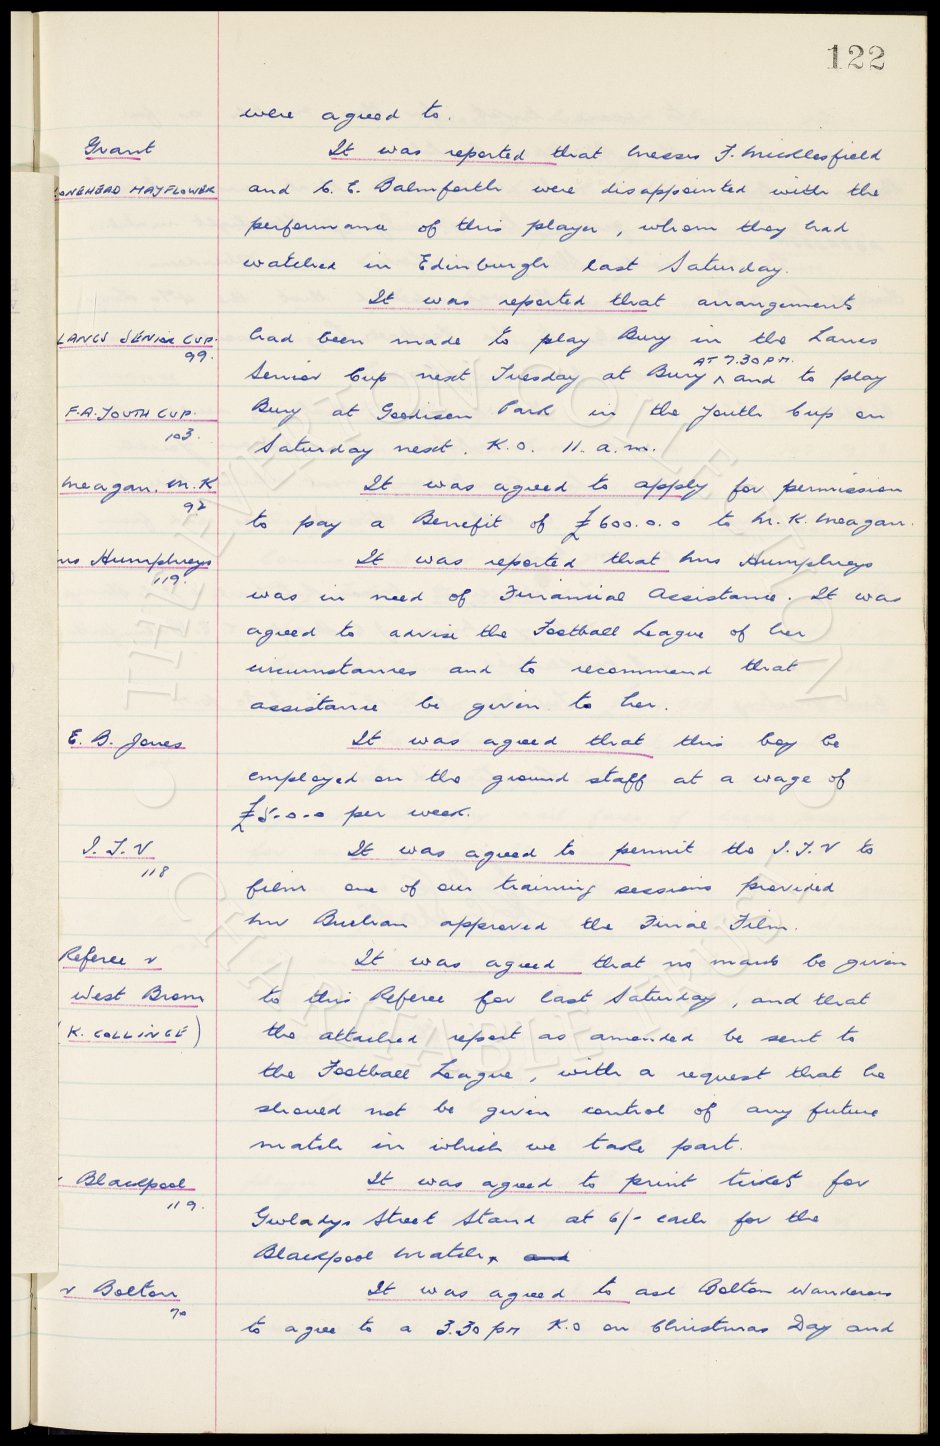 122
were agreed to.
Grant
It was reported that Messrs F. Micklesfield
ONEHEAD MAYFLOWER
and C. E. Balmforth were disappointed with the
performance of this player, whom they had
watched in Edinburgh last Saturday.
It was reported that arrangements
LANCS SENIOR CUP.
had been made to play Bury in the Lancs
99.
AT 7.30 P.M.
Senior Cup next Tuesday at Bury ^ and to play
F.A. YOUTH CUP.
Bury at Goodison Park in the Youth Cup on
103.
Saturday next. K.O. 11. a.m.
Meagan, M.K
It was agreed to apply for permission
92
to pay a Benefit of £600.0.0 to M. K. Meagan.
rs Humphreys
It was reported that Mrs Humphreys
119.
was in need of Financial Assistance. It was
agreed to advise the Football League of her
circumstances and to recommend that
assistance be given to her.
E. B. Jones
It was agreed that this boy be
employed on the ground staff at a wage of
£5.0.0 per week.
I.T.V
It was agreed to permit the I.T.V to
118
film one of our training sessions provided
Mr Buchan approved the Final Film.
Referee v
It was agreed that no marks be given
West Brom
to this Referee for last Saturday, and that
(K. COLLINGE)
the attached report as amended be sent to
the Football League, with a request that he
should not be given control of any future
match in which we take part.
v Blackpool
It was agreed to print tickets for
119.
Gwladys Street Stand at 6/- each for the
Blackpool match, and
v Bolton
It was agreed to ask Bolton Wanderers
70
to agree to a 3.30 pm K.O on Christmas Day and
© THE EVERTON COLLECTION CHARITABLE TRUST